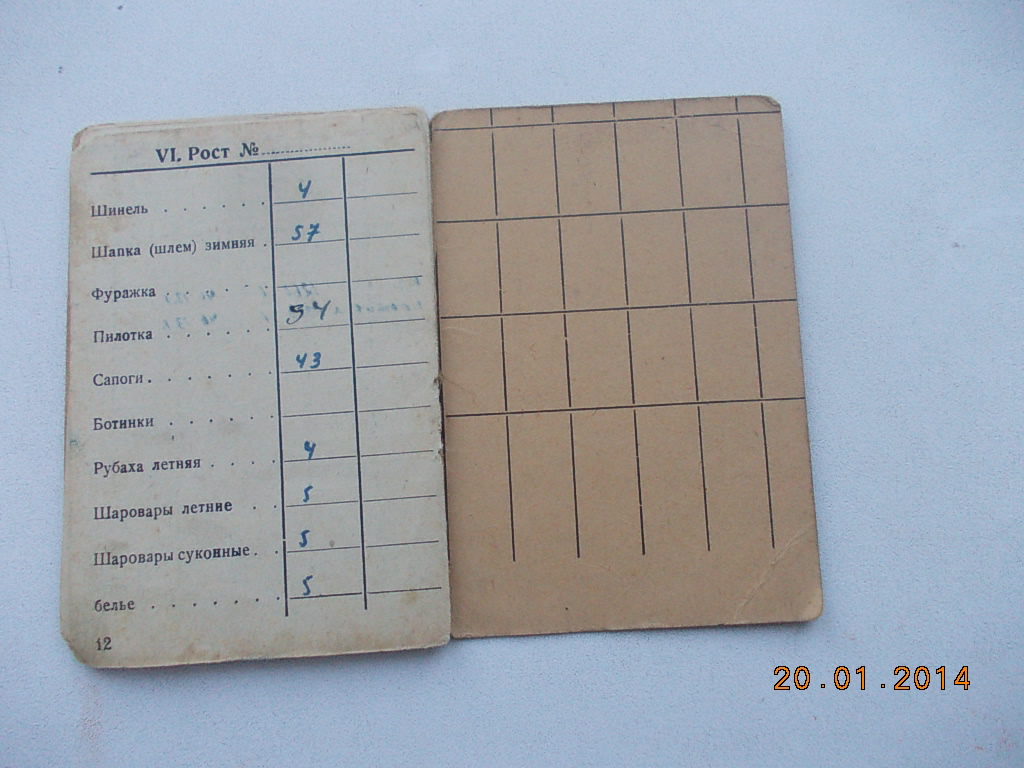 VI. Рост №..................
Шинель . . . . . . 4
Шапка (шлем) зимняя . 57
Фуражка . . . . . .
Пилотка . . . . . . 54
Сапоги. . . . . . . . 43
Ботинки . . . . .
Рубаха летняя . . . . 4
Шаровары летние . . 5
Шаровары суконные . . 5
белье . . . . . . . 5
12
20.01.2014